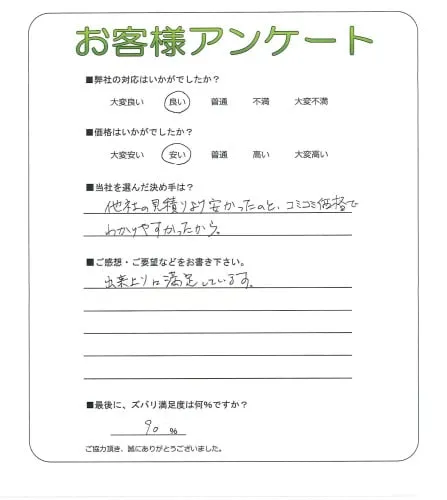 お客様アンケート
■弊社の対応はいかがでしたか?
大変良い 良い 普通 不満 大変不満
■価格はいかがでしたか?
大変安い 安い 普通 高い 大変高い
■当社を選んだ決め手は?
他社の見積りより安かったのと、コミコミ価格で
わかりやすかったから。
■ご感想・ご要望などをお書き下さい。
出来上りに満足しています。
■最後に、ズバリ満足度は何%ですか?
90 %
ご協力頂き、誠にありがとうございました。